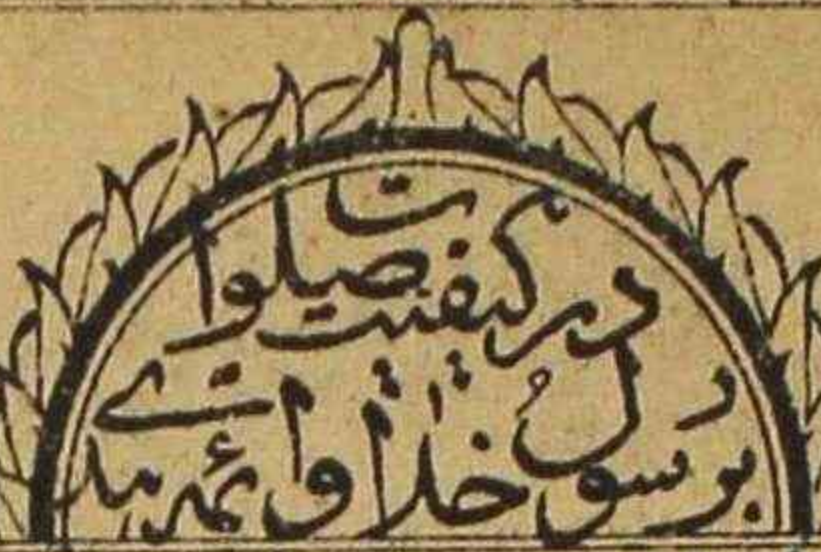 در کیفیت صلوات
بر رسول خدا و ائمه هدی